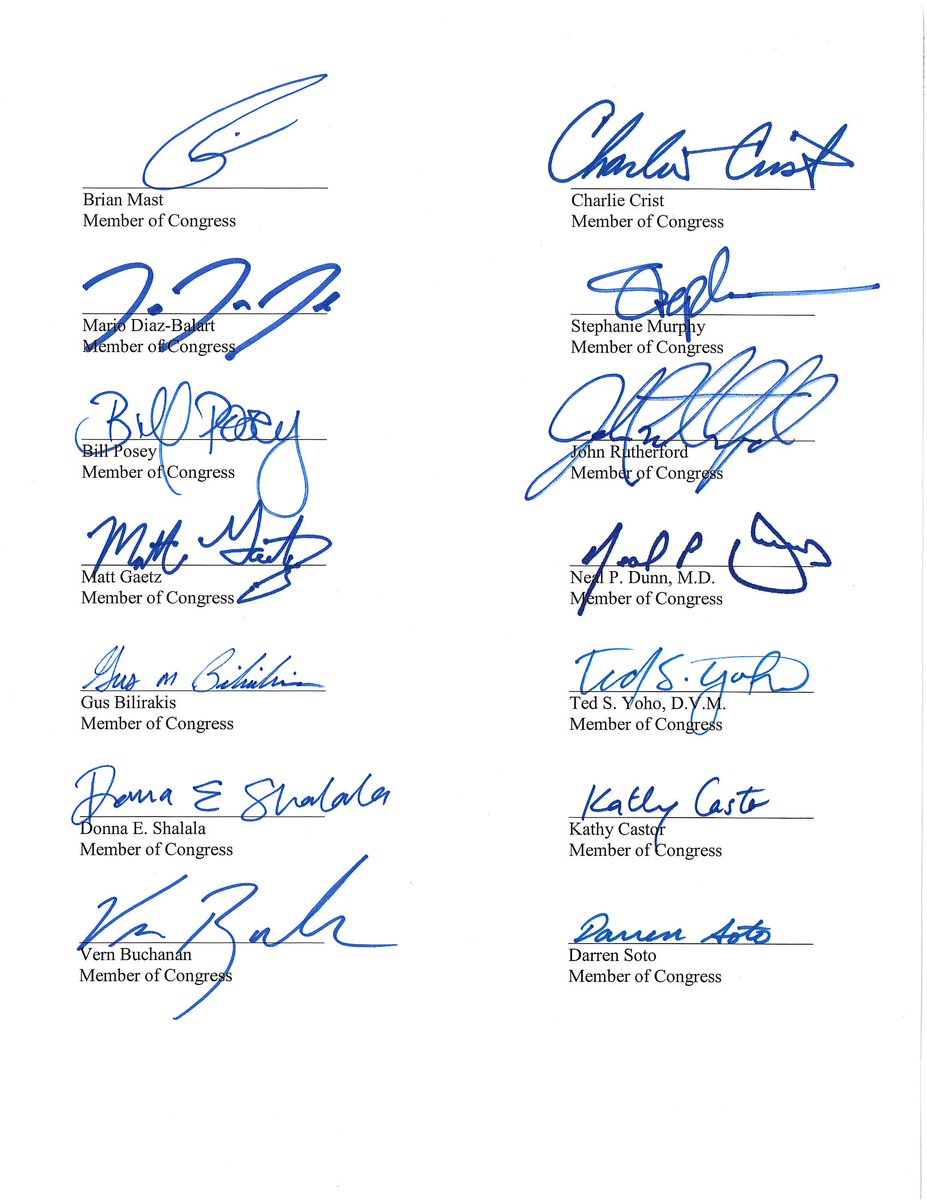 Charlie Crist
Brian Mast
Member of Congress
Charlie Crist
Member of Congress
Mario Diaz-Balart
Member of Congress
Steph
Stephanie Murphy
Member of Congress
Bill Posey
Bill Posey
Member of Congress
John Rutherford
Member of Congress
Matt Gaetz
Matt Gaetz
Member of Congress
Neal P Dunn
Neal P. Dunn, M.D.
Member of Congress
Gus M Bilirakis
Gus Bilirakis
Member of Congress
Ted S. Yoho
Ted S. Yoho, D.V.M.
Member of Congress
Donna E Shalala
Donna E. Shalala
Member of Congress
Kathy Castor
Kathy Castor
Member of Congress
Vern Buchanan
Member of Congress
Darren Soto
Darren Soto
Member of Congress